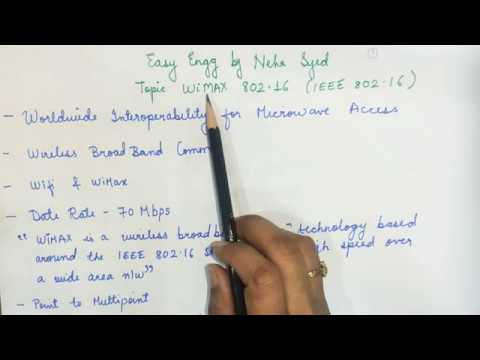 Easy Engg by Neha Syed
Topic WiMAX 802.16 (IEEE 802.16)
- Worldwide Interoperability for Microwave Access
- Wireless BroadBand Comm
- Wifi & WiMax
- Data Rate - 70 Mbps
"WiMAX is a wireless broadb technology based
around the IEEE 802.16 speed over
a wide area n/w"
- Point to Multipoint